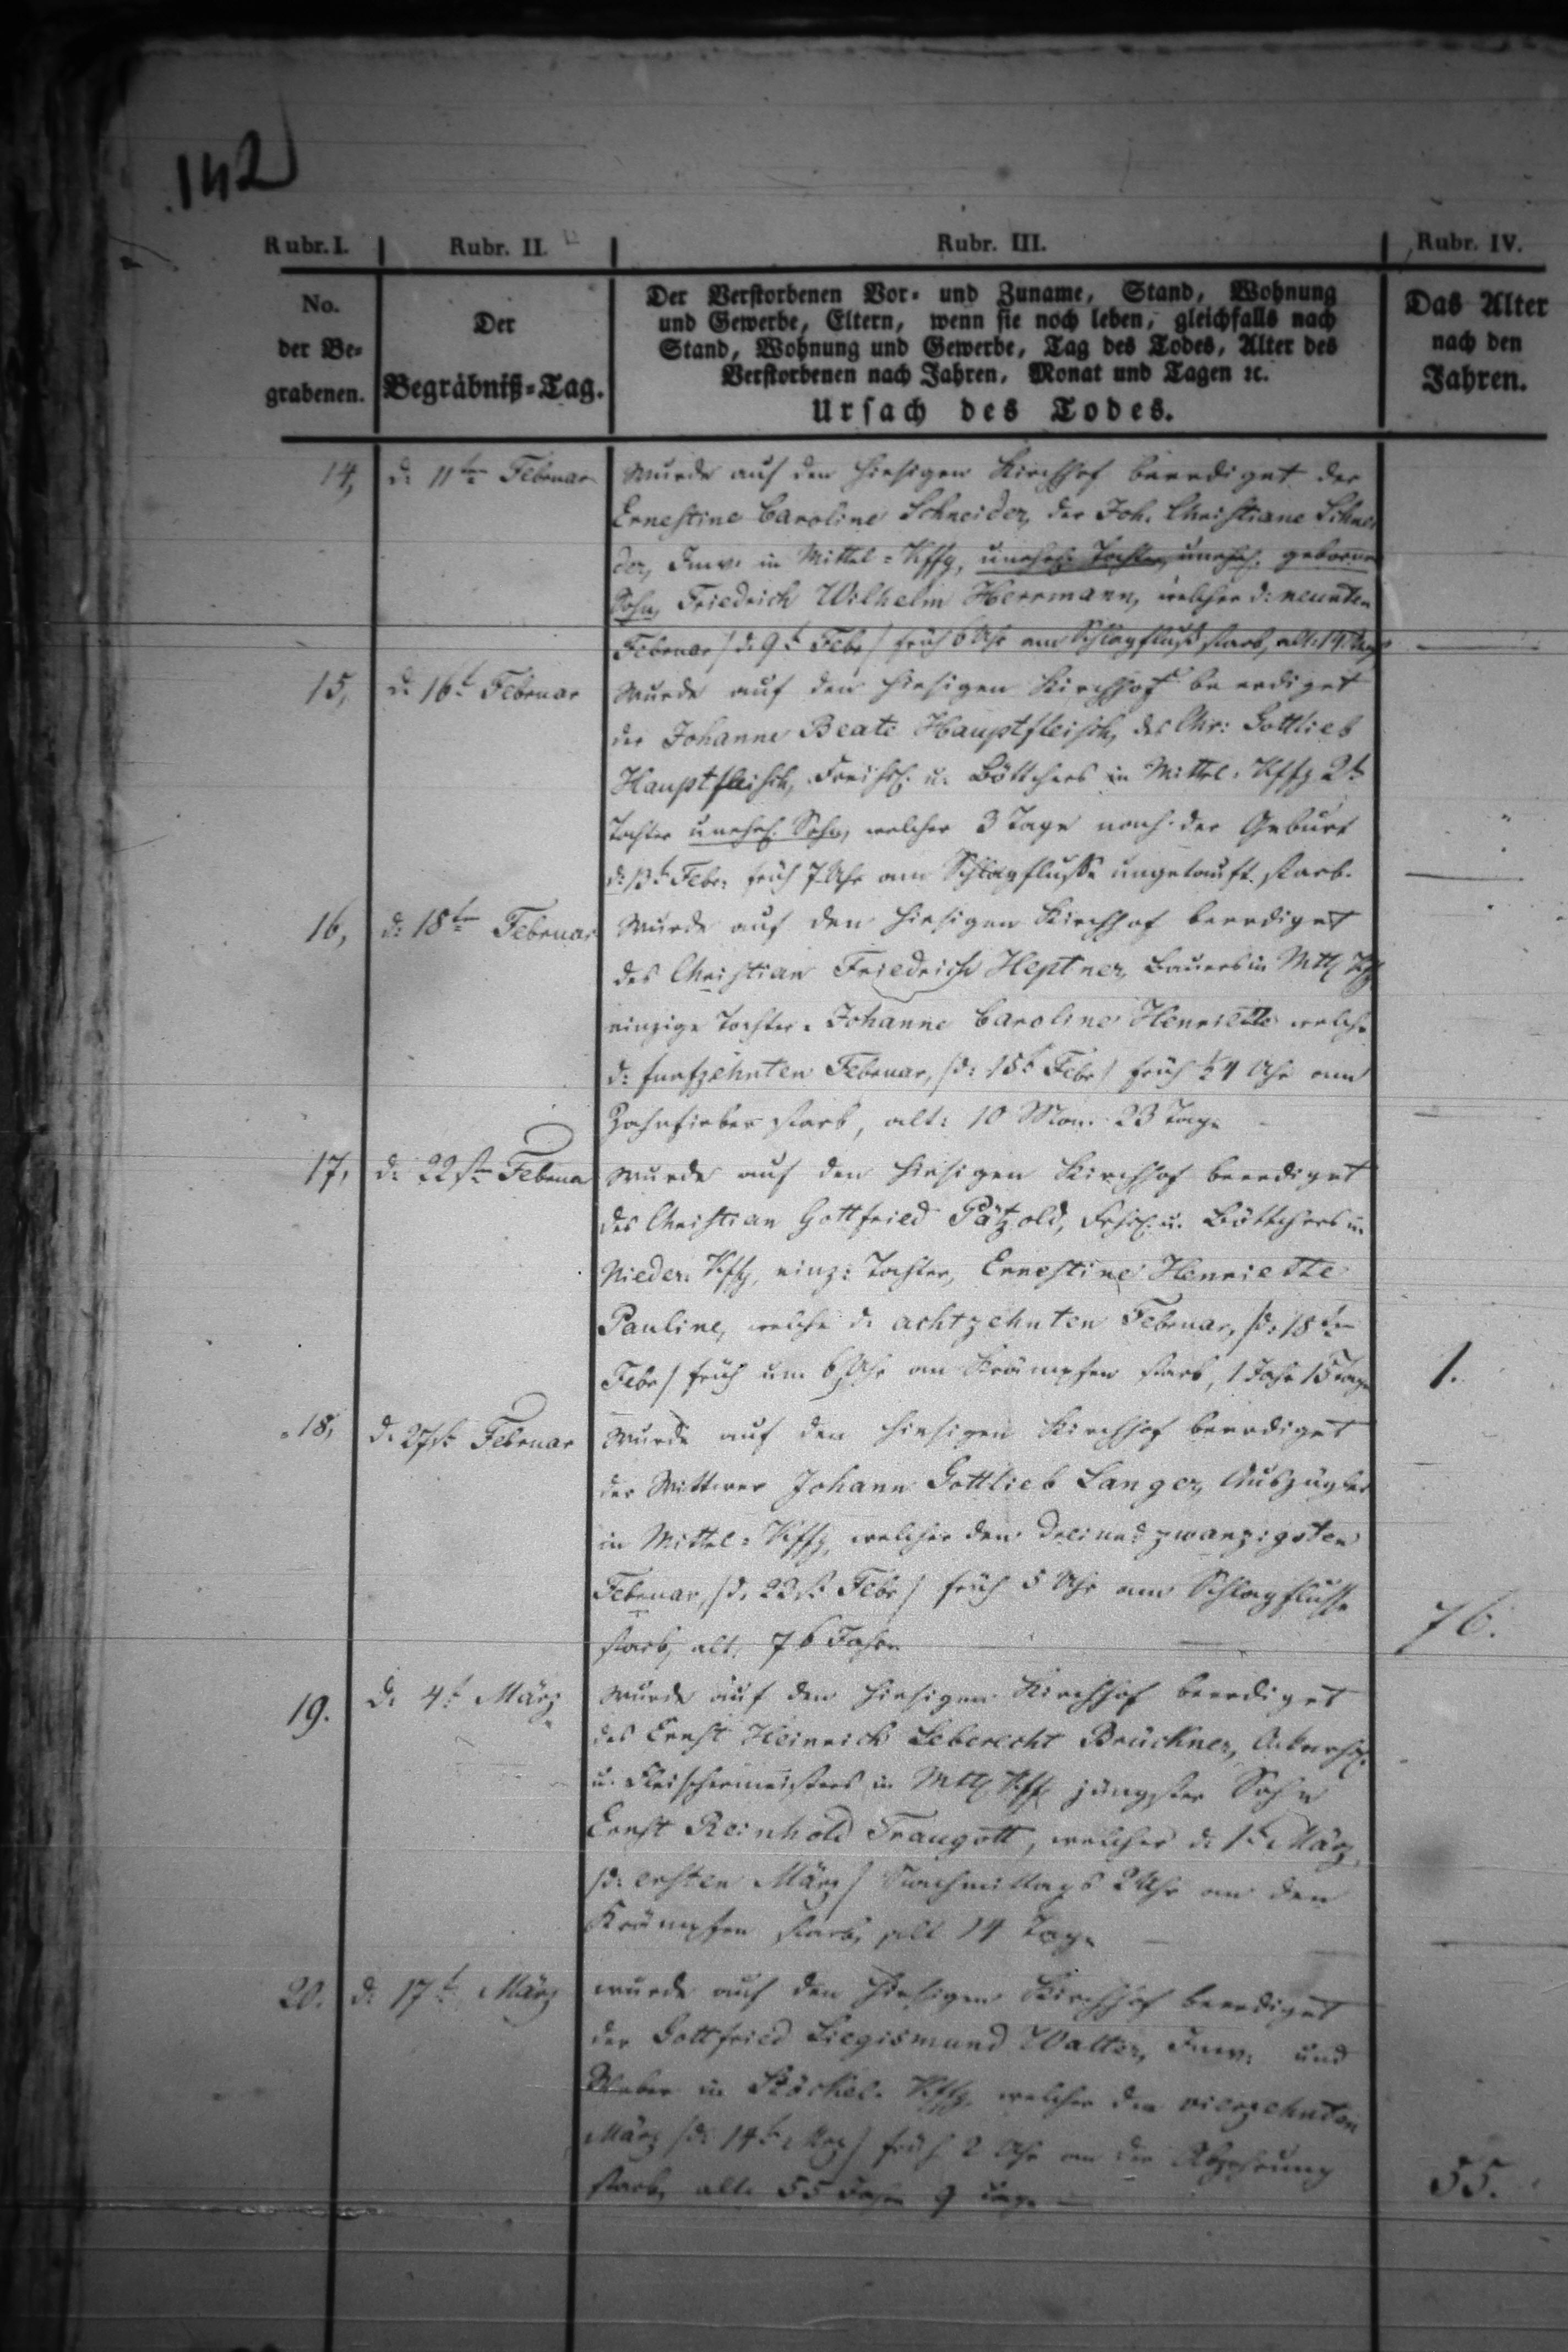 142
Rubr. I. Rubr. II. Rubr. III. Rubr. IV.
No. der Be= grabenen.
Der Begräbniß=Tag.
Der Verstorbenen Vor= und Zuname, Stand, Wohnung
und Gewerbe, Eltern, wenn sie noch leben, gleichfalls nach
Stand, Wohnung und Gewerbe, Tag des Todes, Alter des
Verstorbenen nach Jahren, Monat und Tagen ꝛc.
Ursach des Todes.
Das Alter
nach den
Jahren.
14, d: 11ten Februar wurde auf den hiesigen Kirchhof beerdiget der
Ernestine Caroline Schneider, der Joh. Christiane Schnei
der, Inw: in Mittel=Kffg, unehel. Tochter, unehel. geborner
Sohn, Friedrich Wilhelm Herrmann, welcher d: neunten
Februar /d: 9t Febr/ früh 6 Uhr am Schlagfluß starb, alt: 14 Tage
15, d: 16t Februar wurde auf den hiesigen Kirchhof beerdiget
der Johanne Beate Hauptfleisch, des Chr: Gottlieb
Hauptfleisch, u. Böttchers in Mittel. Kffg 2t
Tochter unehel. Sohn, welcher 3 Tage nach der Geburt
d: 13t Febr: früh 7 Uhr am Schlagflusse ungetauft starb.
16, d: 18ten Februar wurde auf den hiesigen Kirchhof beerdiget
des Christian Friedrich Heptner, Bauers in Mttl Kffg
einzige Tochter. Johanne Caroline Henriette welche
d: funfzehnten Februar, /d: 15t Febr/ früh ½4 Uhr am
Zahnfieber starb, alt: 10 Mon: 23 Tage
17, d: 22stn Februar wurde auf den hiesigen Kirchhof beerdiget
des Christian Gottfried Pätzold, u. Böttchers in
Nieder. Kffg, einz: Tochter, Ernestine Henriette
Pauline, welche d: achtzehnten Februar, /d: 18ten
Febr/ früh um 6 Uhr an Krämpfen starb, 1 Jahr 15 Tage 1.
18, d. 27st Februar wurde auf den hiesigen Kirchhof beerdiget
der Wittwer Johann Gottlieb Langer, Auszügler
in Mittel=Kffg, welcher den dreiundzwanzigsten
Februar, /d. 23st Febr/ früh 5 Uhr am Schlagflusse
starb, alt. 76 Jahre 76.
19. d. 4t März wurde auf den hiesigen Kirchhof beerdiget
des Ernst Heinrich Leberecht Brückner,
u. Fleischermeisters in Mttl Kffg jüngster Sohn
Ernst Reinhold Traugott, welcher d: 1t März,
/d: ersten März/ Nachmittags 2 Uhr an den
Krämpfen starb, alt 14 Tage
20. d: 17t März wurde auf den hiesigen Kirchhof beerdiget
der Gottfried Siegismund Walter, Inw: und
Weber in Stöckel. Kffg, welcher den vierzehnten
März /d: 14t Mrz/ früh 2 Uhr an der Abzehrung
starb, alt. 55 Jahr 9 Tage 55.